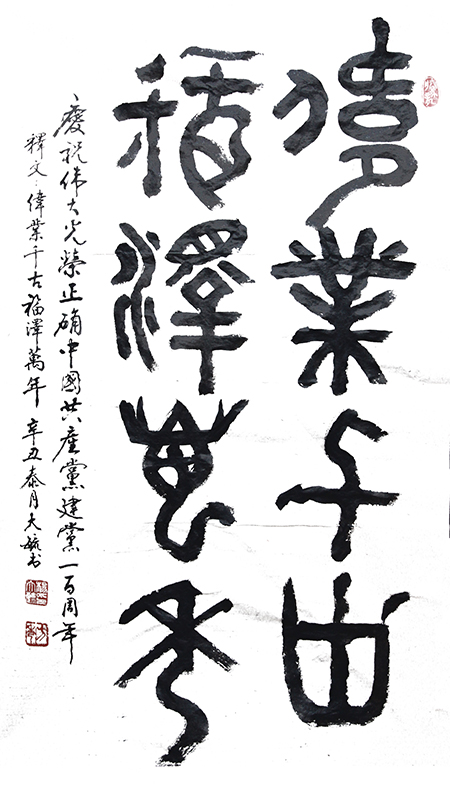 偉業千古
福澤萬年
慶祝伟大光榮正确中國共產黨建黨一百周年
釋文：偉業千古福澤萬年 辛丑泰月大毓书